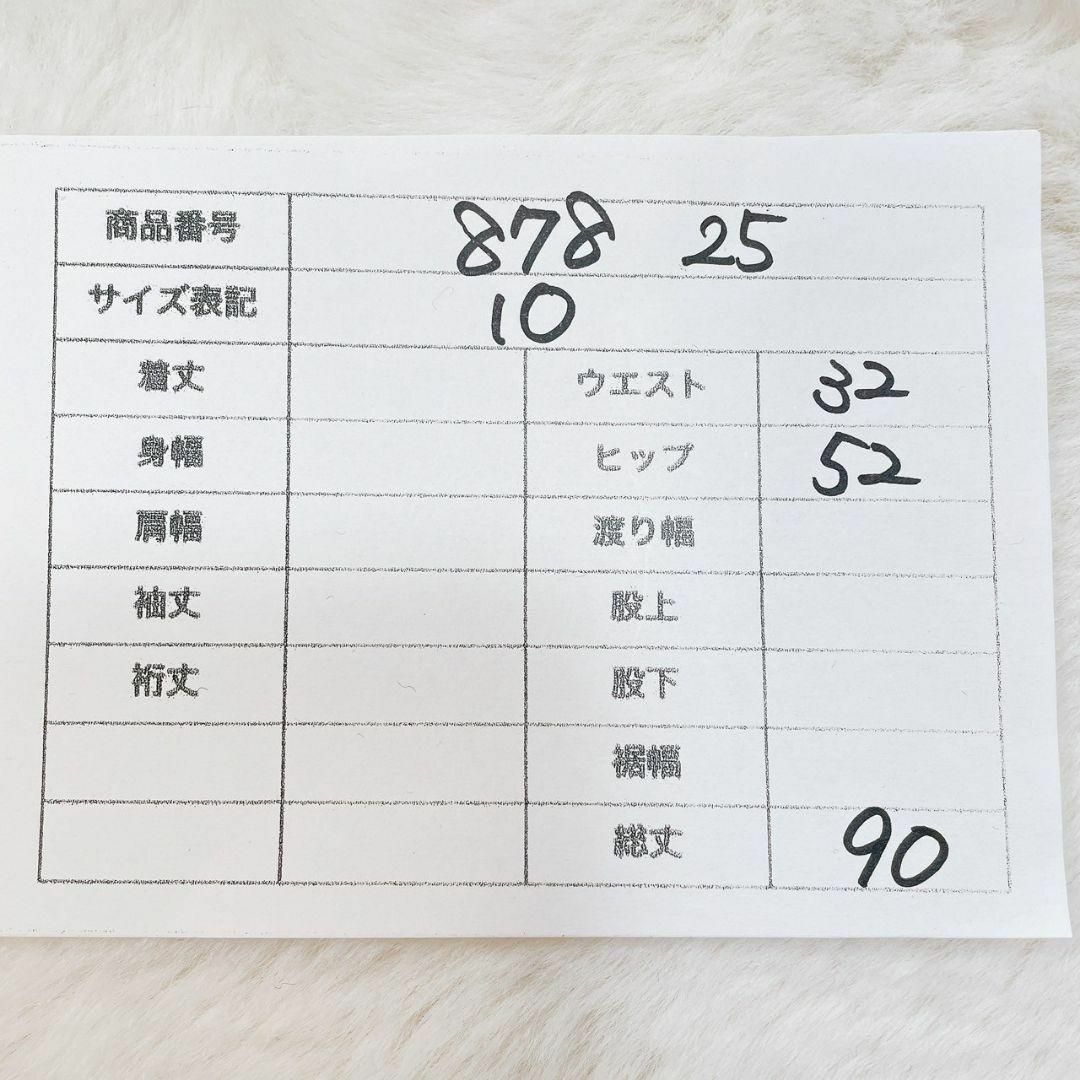 商品番号 878 25
サイズ表記 10
着丈 ウエスト 32
身幅 ヒップ 52
肩幅 渡り幅
袖丈 股上
裄丈 股下
裾幅
総丈 90